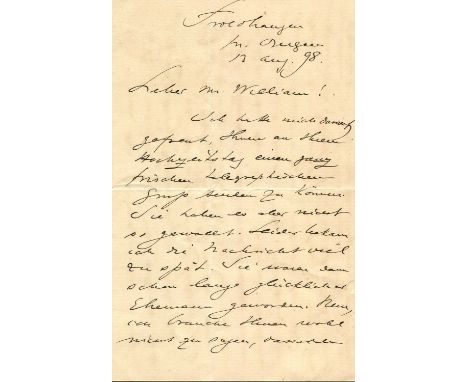 Troldhaugen
pr. Bergen
13 Aug. 98.
Lieber Mr William!
Ich hatte mich darauf
gefreut, Ihnen an Ihrem
Hochzeitstag einen ganz
frischen telegraphischen
Gruß senden zu können.
Sie haben es aber nicht
so gewollt. Leider bekam
ich die Nachricht viel
zu spät. Sie waren dann
schon lange glücklicher
Ehemann geworden. Nun,
ich brauche Ihnen wohl
nicht zu sagen,